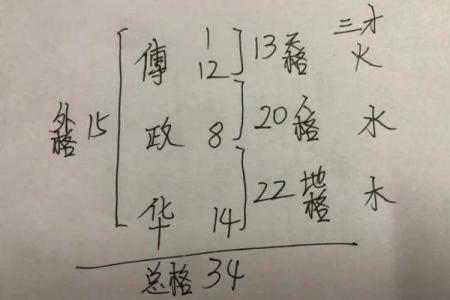 三才
1
傅 12 13天格 火
外格 15 政 8 20人格 水
华 14 22地格 木
总格 34